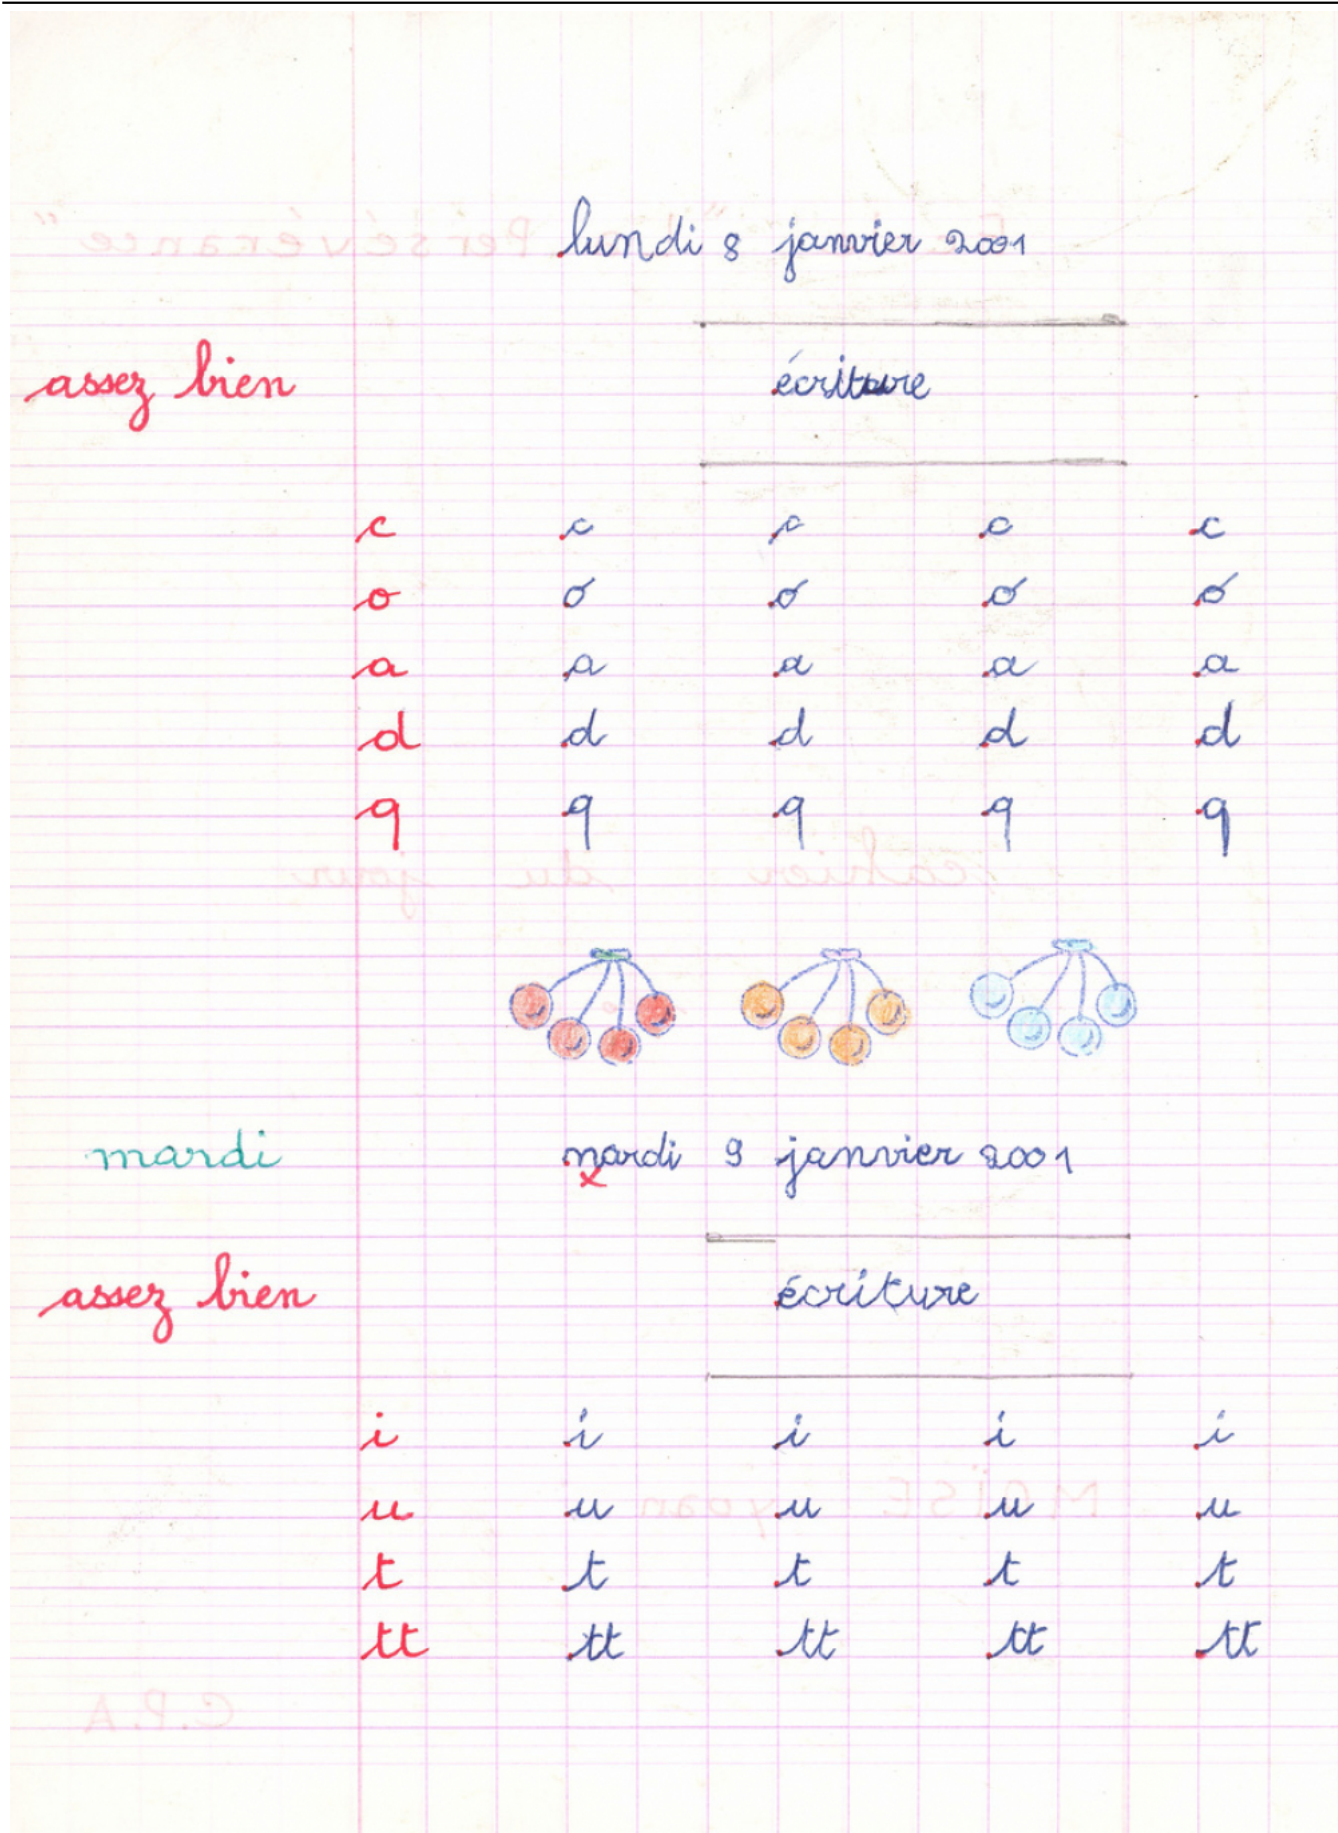 lundi 8 janvier 2001
assez bien écriture
c c c c c
o o o o o
a a a a a
d d d d d
q q q q q
mardi mardi 9 janvier 2001
x
assez bien écriture
i i i i i
u u u u u
t t t t t
tt tt tt tt tt